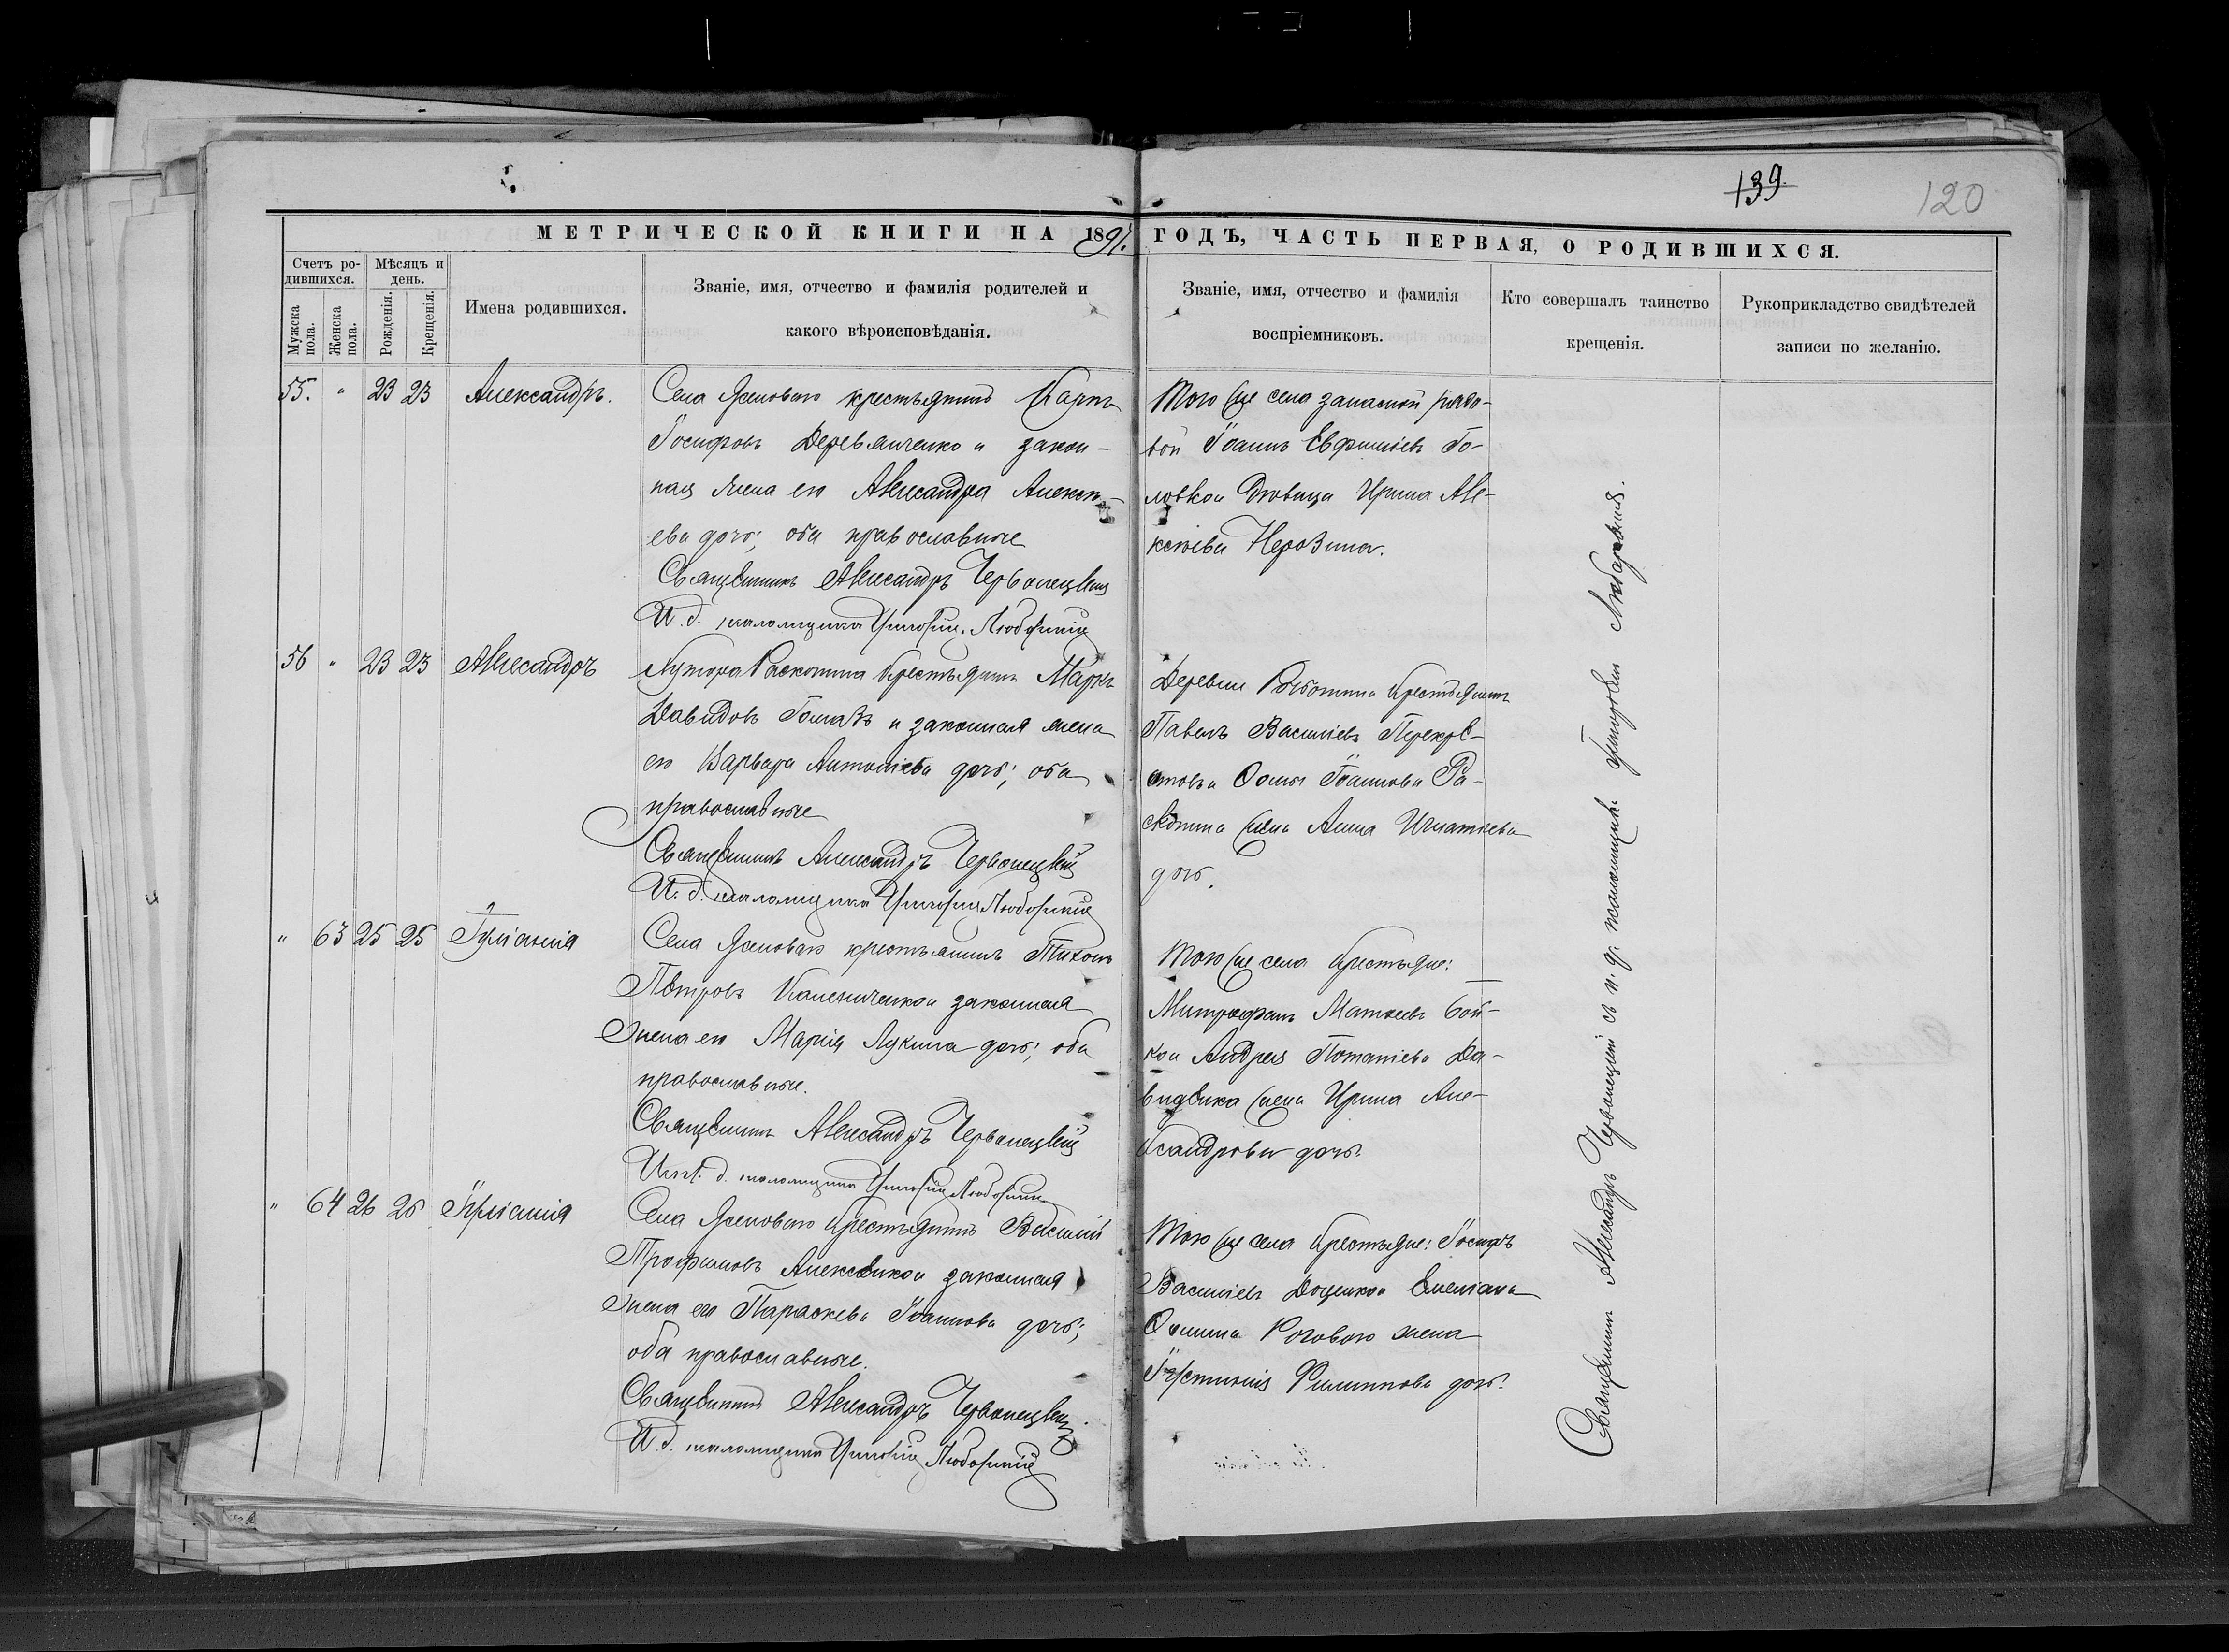 139.
120
МЕТРИЧЕСКОЙ КНИГИ НА 1891. ГОДЪ, ЧАСТЬ ПЕРВАЯ, О РОДИВШИХСЯ.
Счетъ ро-
дившихся.
Мужска
пола.
Женска
пола.
Мѣсяцъ и
день.
Рожденія.
Крещенія.
Имена родившихся.
Званіе, имя, отчество и фамилія родителей и
какого вѣроисповѣданія.
Званіе, имя, отчество и фамилія
воспріемниковъ.
Кто совершалъ таинство
крещенія.
Рукоприкладство свидѣтелей
записи по желанію.
55. " 23 23 Александръ.
Села крестьянинъ Карпъ
Іосифовъ Деревянченко и закон-
ная жена его Александра Алексѣ-
ева дочь; оба православные
Священникъ Александръ Червонецкій
И. д. псаломщика Григорій Любарскій
Того же села запасной рядо-
вой Іоаннъ Евфиміевъ Го-
ловко и дѣвица Ирина Але-
ксѣева
56 " 23 23 Александръ
Хутора крестьянинъ Маркъ
Давидовъ и законная жена
его Варвара Антоніева дочь; оба
православные
Священникъ Александръ Червонецкій
И. д. псаломщика Григорій Любарскій
Деревни крестьянинъ
Павелъ Василіевъ
Ѳомы Іоаннова
жена Анна Игнатіева
дочь.
" 63 25 25 Іуліанія
Села крестьянинъ Тихонъ
Петровъ и законная
жена его Марія Лукина дочь; оба
православные.
Священникъ Александръ Червонецкій
Исп. д. псаломщика Григорій Любарскій
Того же села крестьяне:
Митрофанъ Матѳеевъ Бой-
ко и Андрея Потапіева Да-
виденка жена Ирина Але-
ксандрова дочь.
" 64 26 26 Іуліанія
Села крестьянинъ Василій
Трофимовъ Алексѣенко и законная
жена его Параскева Іоаннова дочь;
оба православные.
Священникъ Александръ Червонецкій.
И. д. псаломщика Григорій Любарскій
Того же села крестьяне: Іосифъ
Василіевъ Доценко и Емеліана
Ѳомина Рогового жена
Іустинія Филиппова дочь.
Священникъ Александръ Червонецкій съ и. д. псаломщика Григоріемъ Любарскимъ.